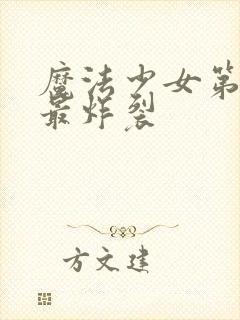 魔法少女第
最炸裂
方文建